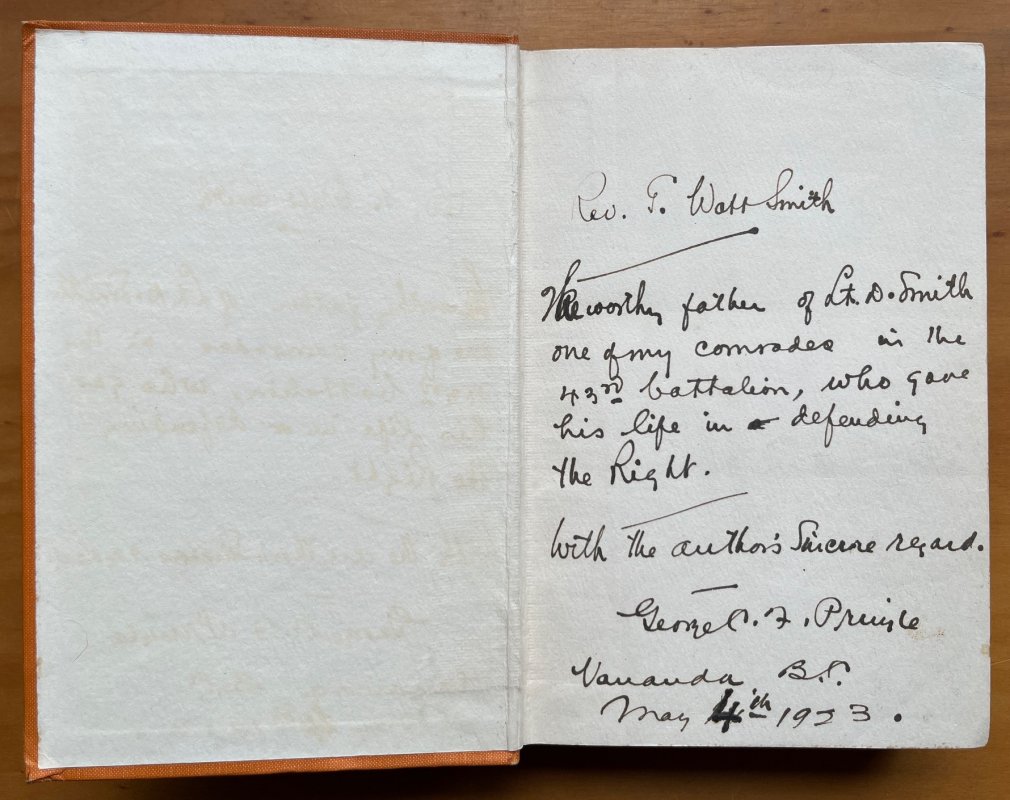 Rev. T. Watt Smith
The worthy father of Lt. D. Smith
one of my comrades in the
43rd battalion, who gave
his life in defending
the Right.
With the author's Sincere regard.
George C. F. Pringle
Vananda B.C.
May 4th 1923.